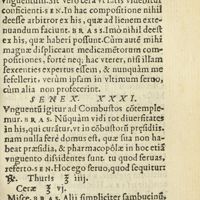 conficientes. SEN. In hac compositione nihil
deesse arbitror ex his, quæ ad lienem exte-
nuandum faciunt. BRASS. Imò nihil deest
ex his, quæ haberi possunt. Cùm alia mihi
magnæ displiceant medicamétorum com-
positiones, forté neq; hac vterer, nisi illam
sexcenties expertus essem, & nunquàm me
fefellerit. verùm ipsam in vltimum seruo,
cùm alia non profecerint.
SENEX. XXXI.
Vnguentũ igitur ad Combustos cótemple-
mur. BRAS. Núquàm vidi tot diuersitates
in his, quot curantur, vt in cóbustorũ præsidijs.
nam nulla ferè domus est, quæ nõ sua non ha-
beat præsidia, & pharmacopólæ in hoc etiã
vnguento dissidentes sunt: tu quod seruas,
refer to. SEN. Hoc ego seruo, quod sequitur
℞. Thuris ʒ iiij.
Ceræ ʒ vj.
Misce. BRAS. Alij simpliciter sambucinũ,